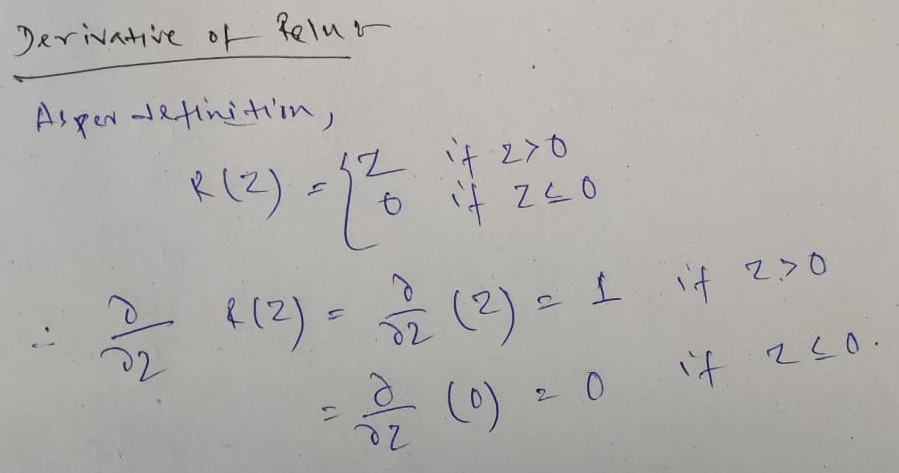 Derivative of Relu
As per definition,
R(Z) = { Z if z>0
0 if Z ≤ 0
∴ ∂/∂z R(Z) = ∂/∂z (z) = 1 if z>0
= ∂/∂z (0) = 0 if z≤0.